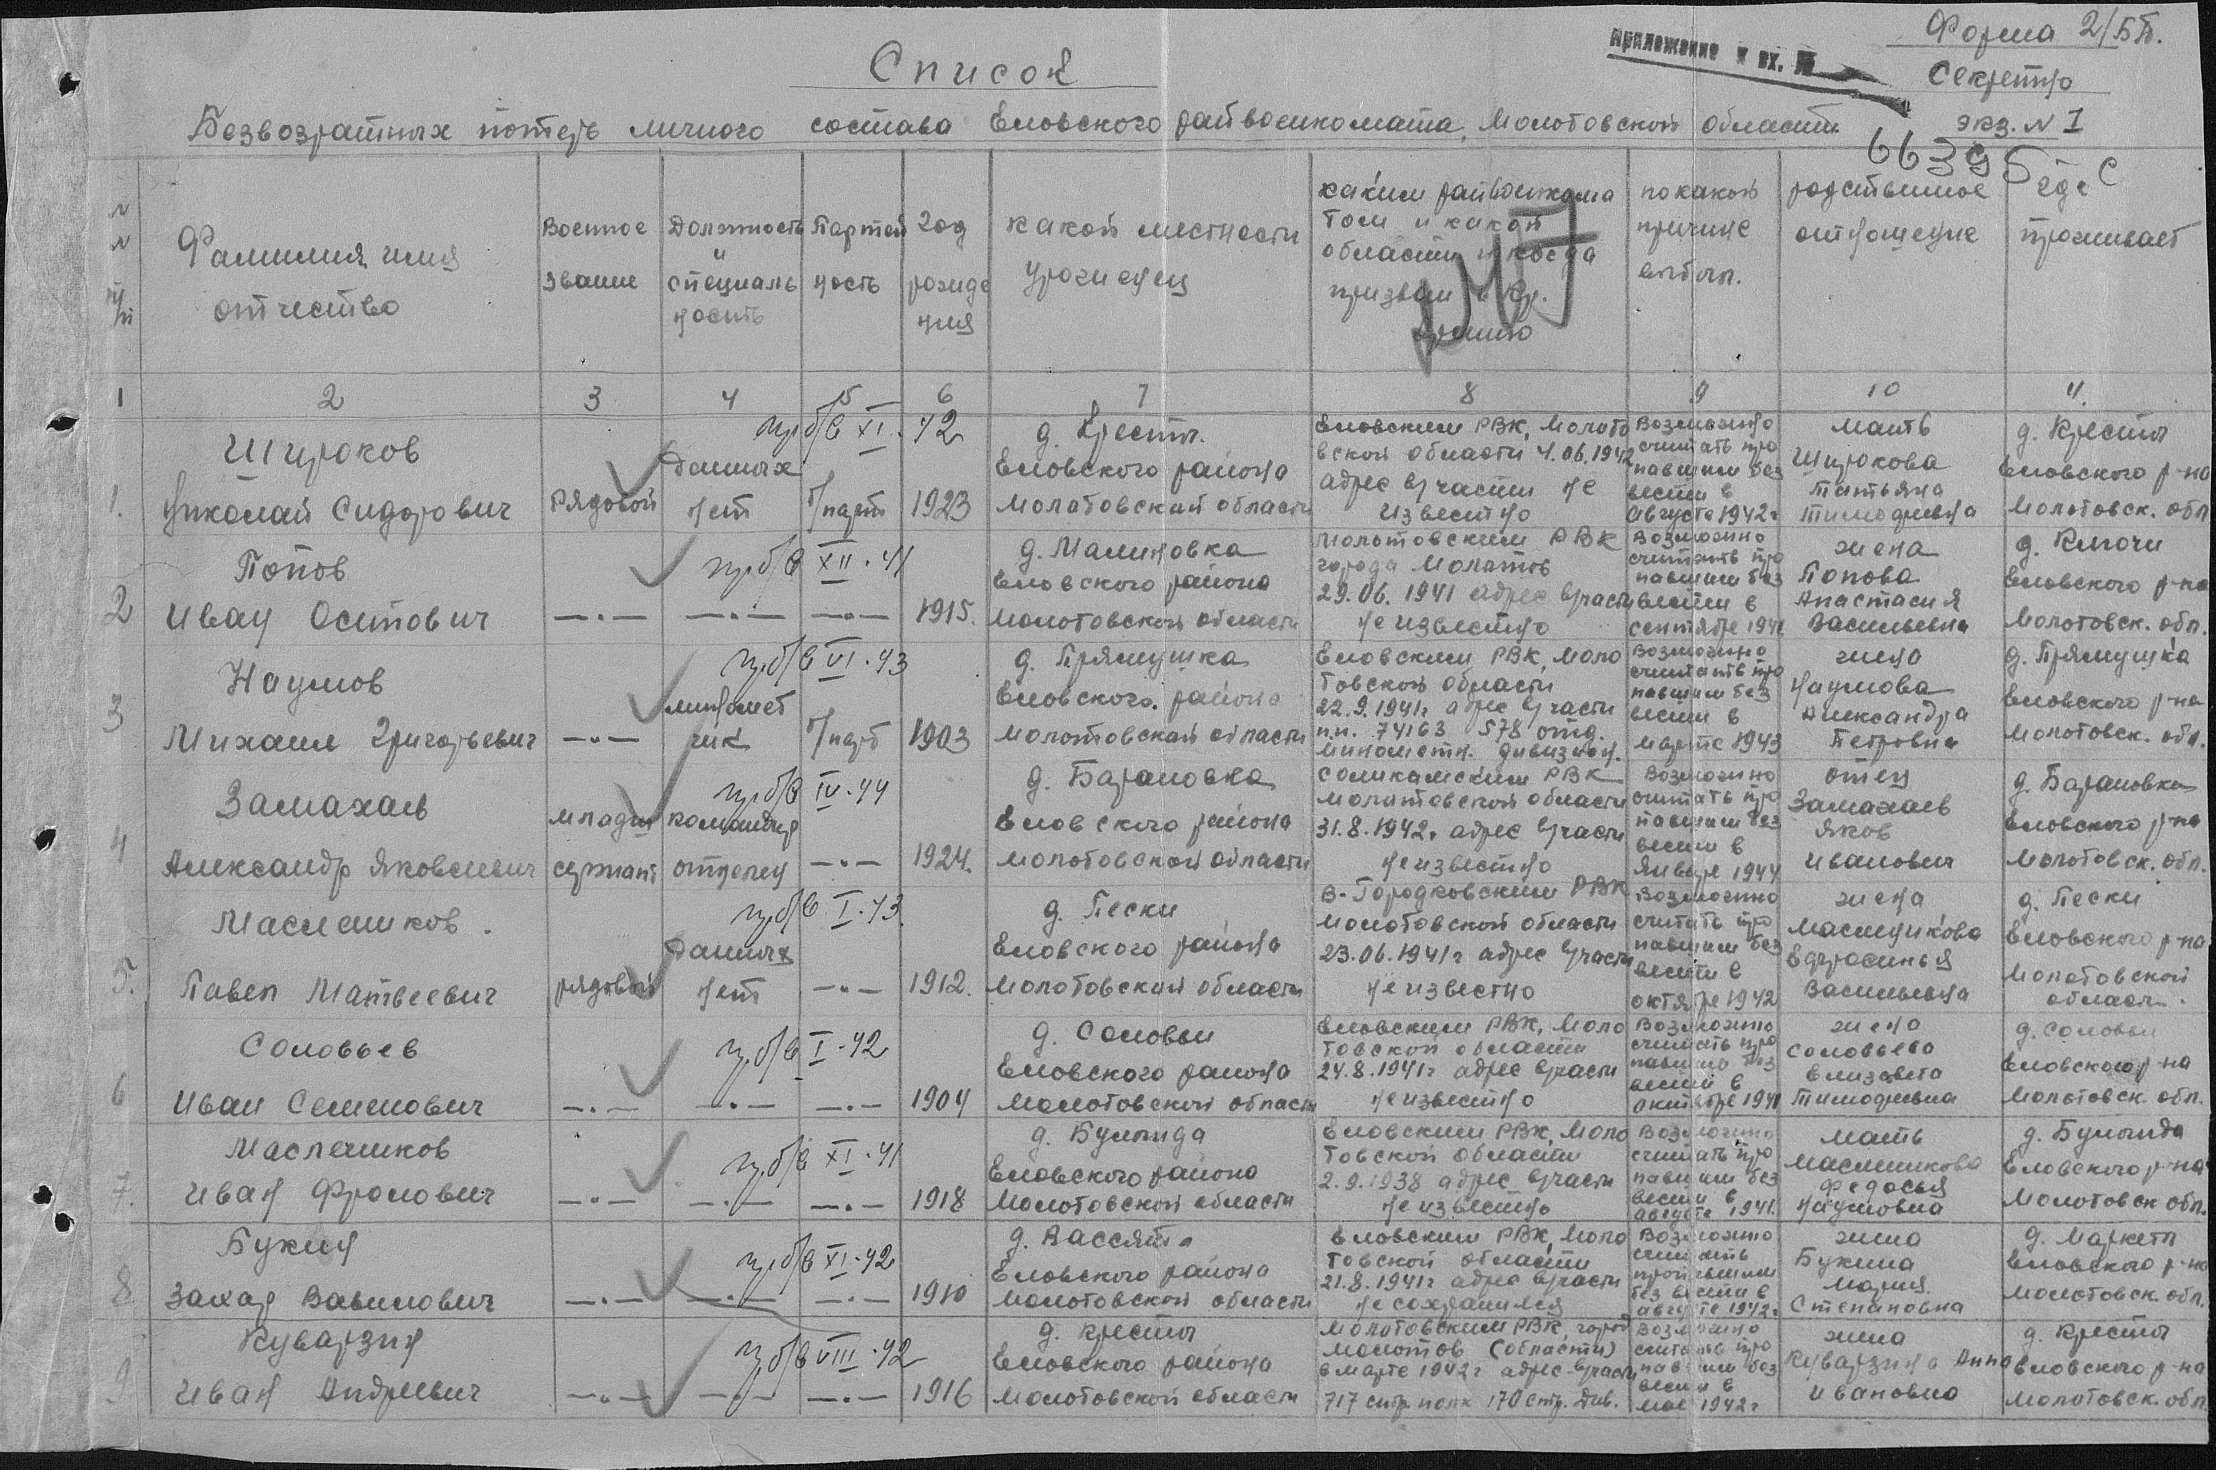 Форма 2/БП.
Приложение к вх. №
Секретно
Список
экз. N I
Безвозвратных потерь личного состава Еловского райвоенкомата, Молотовской области
66395 с
N N п/п
Фамилия, имя отчество
Военное звание
Должность и специальность
Партейность
Год рождения
Какой местности уроженец
каким райвоенкоматом и какой области и когда призван в Кр. армию
по какой причине выбыл.
родственное отношение
где проживает
1 2 3 4 5 6 7 8 9 10 11
пр. б/в XI. 42
1. Широков Николай Сидорович
рядовой
Данных нет
б/парт
1923
д. Кресты. Еловского района Молотовской области
Еловским РВК, Молотовской области 4.06.1942 адрес в/части не известно
Возможно считать пропавшим без вести в августе 1942г
мать Широкова Татьяна Тимофеевна
д. Кресты Еловского р-на Молотовск. обл
пр. б/в XII. 41
2 Попов Иван Осипович
—·— —·— —·— 1915.
д. Малиновка Еловского района Молотовской области
Молотовским РВК города Молотов 29.06.1941 адрес в/части не известно
Возможно считать пропавшим без вести в сентябре 1941
жена Попова Анастасия Васильевна
д. Ключи Еловского р-на Молотовск. обл.
пр. б/в VI. 43
3 Наумов Михаил Григорьевич
—·—
минометчик
б/парт
1903
д. Прямушка Еловского района Молотовской области
Еловским РВК, Молотовской области 22.9.1941г адрес в/части п.п. 74163 578 отд. минометн. дивизион.
Возможно считать пропавшим без вести в марте 1943
жена Наумова Александра Петровна
д. Прямушка Еловского р-на Молотовск. обл.
пр. б/в IV. 44
4 Замахаев Александр Яковлевич
младш сержант
командир отделен
—·—
1924.
д. Барановка Еловского района Молотовской области
Соликамским РВК Молотовской области 31.8.1942г адрес в/части не известно
Возможно считать пропавшим без вести в январе 1944
отец Замахаев Яков Иванович
д. Барановка Еловского р-на Молотовск. обл.
пр. б/в I. 43.
5. Масленников. Павел Матвеевич
рядовой
Данных нет
—·—
1912.
д. Пески Еловского района Молотовской области
В-Городковским РВК Молотовской области 23.06.1941г адрес в/части не известно
Возможно считать пропавшим без вести в октябре 1942
жена Масленникова Ефросинья Васильевна
д. Пески Еловского р-на Молотовской област.
пр. б/в I. 42
6 Соловьев Иван Семенович
—·— —·— —·— 1904
д. Соловьи Еловского района Молотовской области
Еловским РВК, Молотовской области 24.8.1941г адрес в/части не известно
Возможно считать пропавшим без вести в октябре 1941
жена Соловьева Елизавета Тимофеевна
д. Соловьи Еловского р-на Молотовск. обл.
пр. б/в XI. 41
7. Масленников Иван Фролович
—·— —·— —·— 1918
д. Булында Еловского района Молотовской области
Еловским РВК, Молотовской области 2.9.1938 адрес в/части не известно
Возможно считать пропавшим без вести в августе 1941.
мать Масленникова Федосья Наумовна
д. Булында Еловского р-на Молотовск обл.
пр. б/в XI. 42
8 Букин Захар Вавилович
—·— —·— —·— 1910
д. Вассята Еловского района Молотовской области
Еловским РВК, Молотовской области 21.8.1941г адрес в/части не сохранился
Возможно считать пропавшим без вести в августе 1942г.
жена Букина Мария Степановна
д. Маркеты Еловского р-на Молотовск. обл.
пр. б/в VIII. 42
9 Куварзин Иван Андреевич
—·— —·— —·— 1916
д. Кресты Еловского района Молотовской области
Молотовским РВК, город Молотов (области) в марте 1942г адрес в/части 717 стр. полк 170 стр. див.
Возможно считать пропавшим без вести в мае 1942г
жена Куварзина Анна Ивановна
д. Кресты Еловского р-на Молотовск. обл.